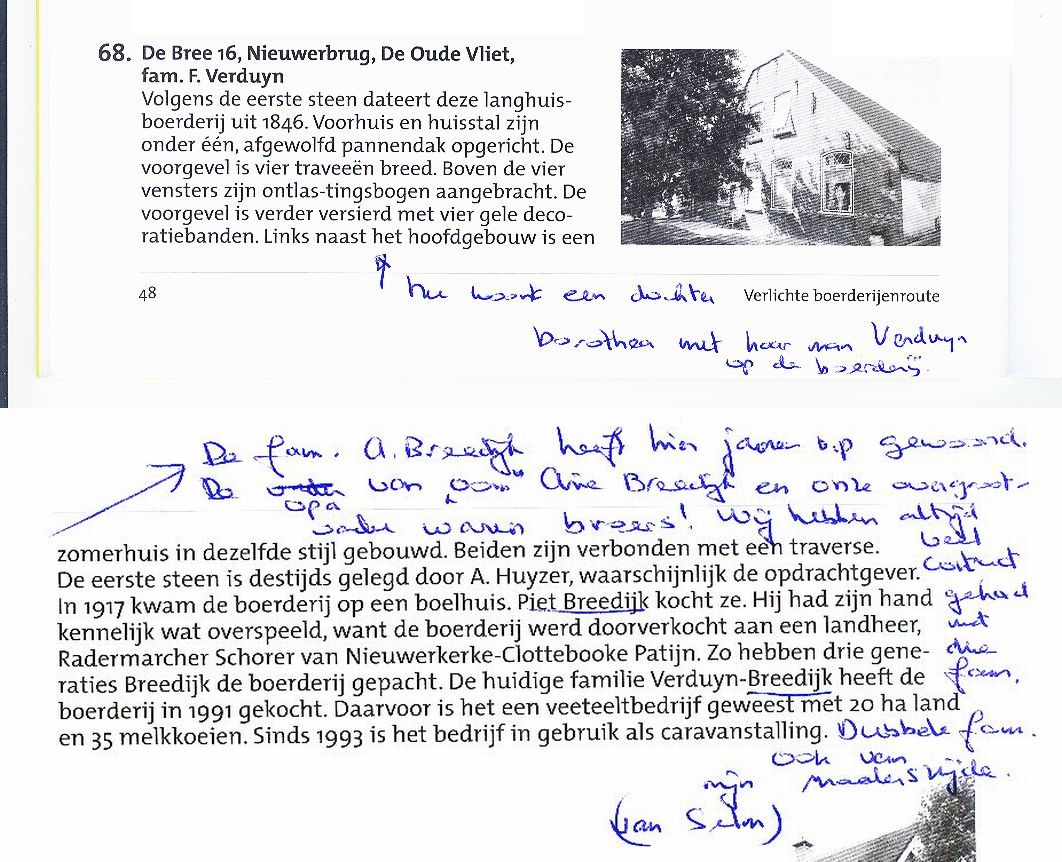 68. De Bree 16, Nieuwerbrug, De Oude Vliet,
fam. F. Verduyn
Volgens de eerste steen dateert deze langhuis-
boerderij uit 1846. Voorhuis en huisstal zijn
onder één, afgewolfd pannendak opgericht. De
voorgevel is vier traveeën breed. Boven de vier
vensters zijn ontlas-tingsbogen aangebracht. De
voorgevel is verder versierd met vier gele deco-
ratiebanden. Links naast het hoofdgebouw is een
48
Verlichte boerderijenroute
nu woont een dochter
Dorothea met haar man Verduyn
op de boerderij.
De fam. A. Breedijk heeft hier jaren op gewoond.
De van oom Arie Breedijk en onze overgroot-
opa
vader waren broers! Wij hebben altijd
veel
contact
gehad
met
die
fam.
zomerhuis in dezelfde stijl gebouwd. Beiden zijn verbonden met een traverse.
De eerste steen is destijds gelegd door A. Huyzer, waarschijnlijk de opdrachtgever.
In 1917 kwam de boerderij op een boelhuis. Piet Breedijk kocht ze. Hij had zijn hand
kennelijk wat overspeeld, want de boerderij werd doorverkocht aan een landheer,
Radermarcher Schorer van Nieuwerkerke-Clottebooke Patijn. Zo hebben drie gene-
raties Breedijk de boerderij gepacht. De huidige familie Verduyn-Breedijk heeft de
boerderij in 1991 gekocht. Daarvoor is het een veeteeltbedrijf geweest met 20 ha land
en 35 melkkoeien. Sinds 1993 is het bedrijf in gebruik als caravanstalling.
Dubbele fam.
ook van
mijn moederszijde.
(van Selm)